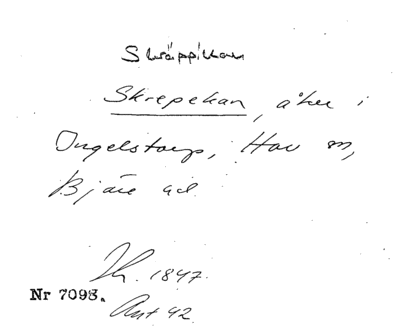 Skräppikan
Skrepekan, åker i
Ingelstorp, Hov sn,
Bjäre hd.
Th. 1847.
Nr 7098.
Ant 42